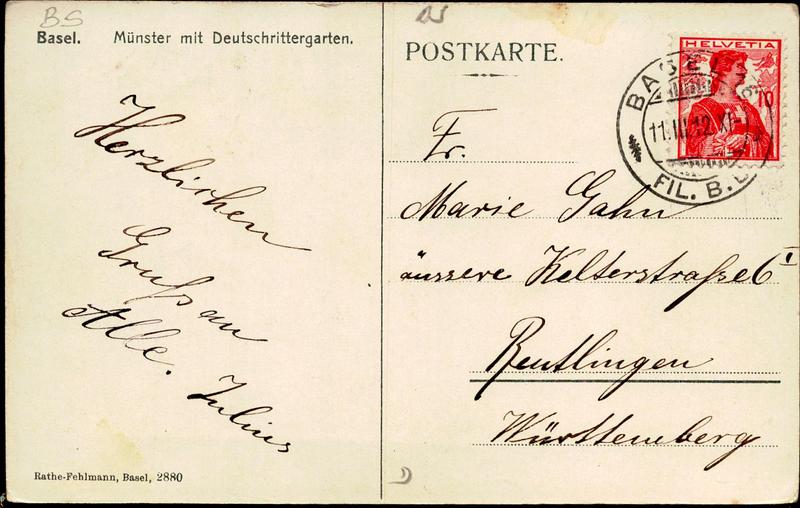 BS
Basel. Münster mit Deutschrittergarten.
Herzlichen
Gruß an
Alle. Julius
Rathe-Fehlmann, Basel, 2880
POSTKARTE.
HELVETIA
10
BASEL
11.III.12.XI-
FIL. B.B.
Fr.
Marie Gahn
äussere Kelterstraße 6 I
Reutlingen
Württemberg
D